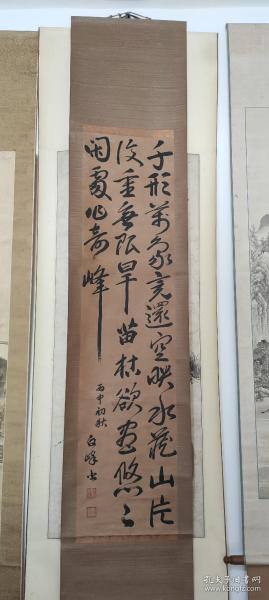 千形萬象竟還空映水藏山片
復重無限旱苗枯欲盡悠々
閑處作奇峰
丙申初秋
白峰书
孔夫子旧书网